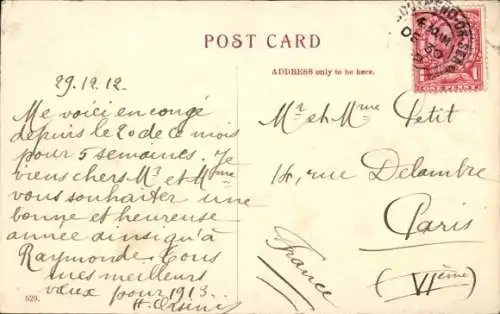 POST CARD
ADDRESS only to be here.
29.12.12
Me voici en congé
depuis le 20 de ce mois
pour 5 semaines. Je
viens chers Mr et Mme
vous souhaiter une
bonne et heureuse
année ainsi qu'à
Raymonde. Tous
mes meilleurs
vœux pour 1913.
H. Orsini
Mr et Mme Petit
14, rue Delambre
Paris
(VIème)
France
SOUTHEND-ON-SEA
DE 30
ONE PENNY
529.